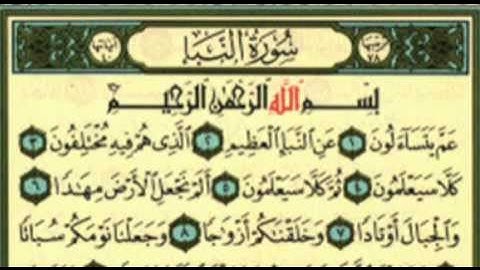 سُورَةُ النَّبَإِ
بِسْمِ اللَّهِ الرَّحْمَٰنِ الرَّحِيمِ
عَمَّ يَتَسَاءَلُونَ ١ عَنِ النَّبَإِ الْعَظِيمِ ٢ الَّذِي هُمْ فِيهِ مُخْتَلِفُونَ ٣
كَلَّا سَيَعْلَمُونَ ٤ ثُمَّ كَلَّا سَيَعْلَمُونَ ٥ أَلَمْ نَجْعَلِ الْأَرْضَ مِهَادًا ٦
وَالْجِبَالَ أَوْتَادًا ٧ وَخَلَقْنَاكُمْ أَزْوَاجًا ٨ وَجَعَلْنَا نَوْمَكُمْ سُبَاتًا